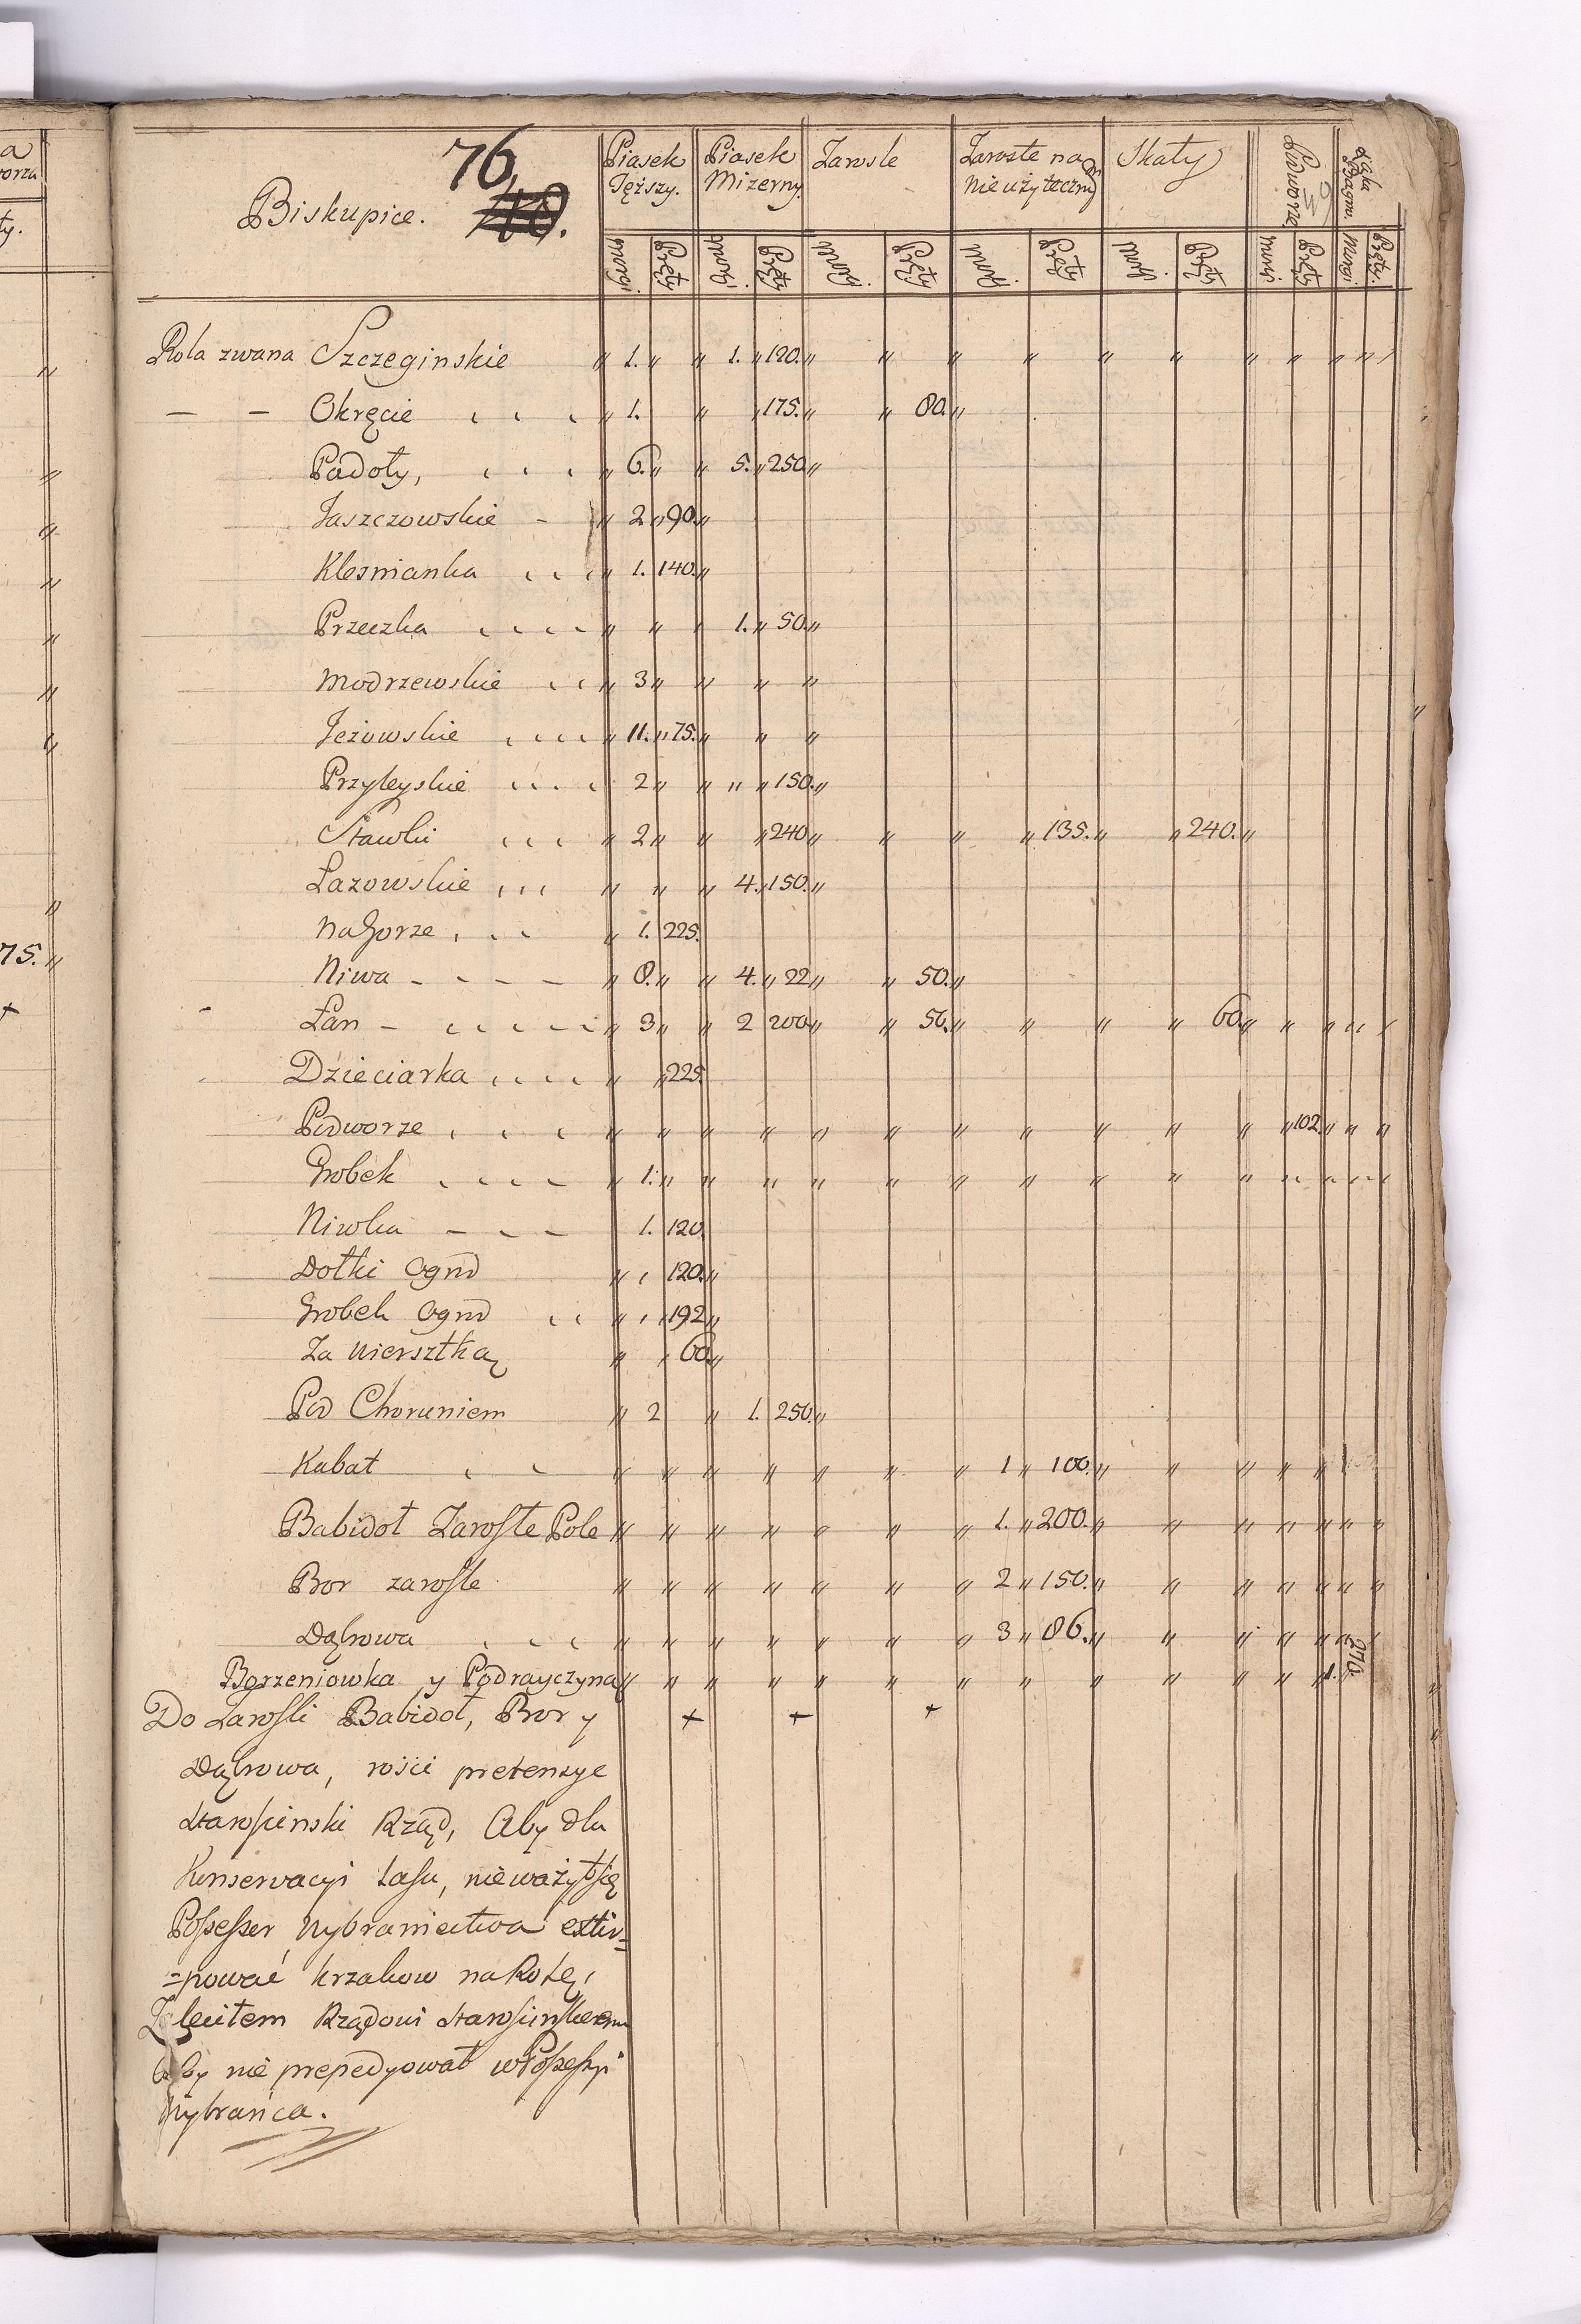 a
worza
ty.
75.
+
76
Biskupice. 40.
Piasek Tęższy. Piasek Mizerny Zarosle Zarosłe na Nieużyteczny Skały Podworze Łąka Bagnu.
morgi. Pręty morgi. Pręty morgi. Pręty morgi. Pręty morgi. Pręty morgi Pręty Morgi. Pręty.
Rola zwana Szczeginskie " 1. " " 1. " 120. " " " " " " " " " " "
— — Okręcie " 1. " " 175. " " 80. "
Padoły, " 6. " " 5. " 250 "
Jaszczowskie - " 2 " 90. "
Klesnianka " 1. 140. "
Przeczka " " 1. " 50. "
Modrzewskie " 3 " " " "
Jeżowskie " 11. " 75. " " "
Przyłeyskie 2 " " " " 150. "
Stawki " 2 " " " 240 " " " " 135. " " 240. "
Łazowskie " " " 4. " 150. "
Na Gorze " 1. 225.
Niwa - - - - " 8. " " 4. " 22 " " 50. "
Łan - " 3 " " 2 200 " " 50. " " " " 60 " " " " "
Dzieciarka " " 225.
Podworze " " " " " " " " " " " " 102. " " "
Grobek " 1. " " " " " " " " " " " " " "
Niwka - - - 1. 120.
Dołki Ogrod " 120. "
Grobek Ogrod " 192 "
Za Wiersztką " 60 "
Pod Choruniem " 2 " 1. 250. "
Kabat " " " " " " " 1 " 100. " " " " "
Babidoł Zarosłe Pole " " " " " " " 1. " 200. " " " " " " "
Bor zarosłe " " " " " " " 2 " 150. " " " " " " "
Dąbrowa " " " " " " " 3 " 86. " " " " " "
Borzeniowka y Podrayczyna " " " " " " " " " " " " " 1. 270.
Do Zarosli Babidoł, Bor y + + +
Dąbrowa, rości pretensye
Staroscinski Rząd, Aby dla
Konserwacyi Lasu, nieważył się
Possessor Wybraniectwa extir=
=pować krzakow na Rolę,
Zleciłem Rządowi Starościnskiemu
Aby nie prepedyował w Possessyi
Wybrańca.